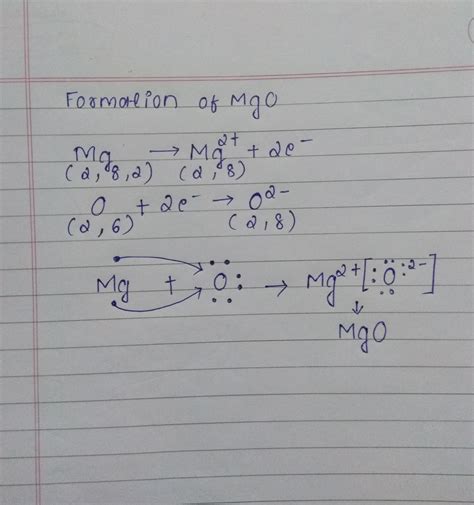 Formation of MgO
Mg → Mg²⁺ + 2e⁻
(2,8,2) (2,8)
O + 2e⁻ → O²⁻
(2,6) (2,8)
Mg + O → Mg²⁺[:O:²⁻]
↓
MgO